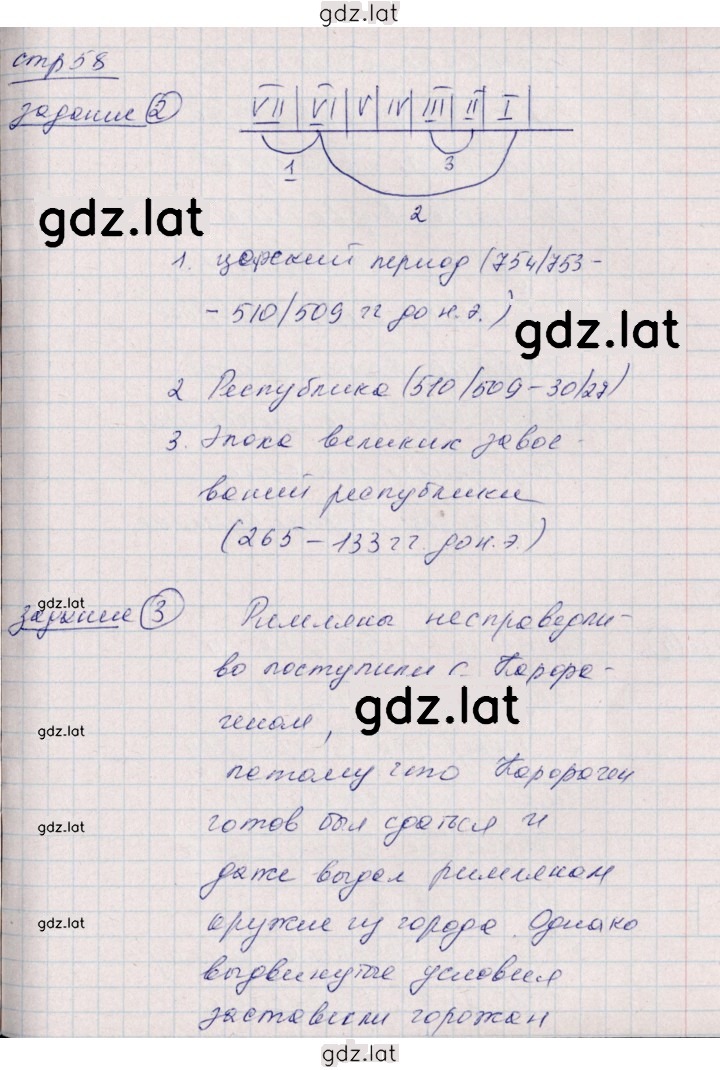 gdz.lat
стр 58
задание 2
VII | VI | V | IV | III | II | I |
1
3
2
gdz.lat
1. царский период (754/753-
- 510/509 гг до н.э.)
gdz.lat
2 Республика (510/509-30/27)
3. Эпока великик завое-
ваний республики
(265-133 гг до н.э.)
gdz.lat
задание 3
Римляны несправедли-
во поступили с Карфа-
геном,
gdz.lat
gdz.lat
потому что Карфаген
готов был сдаться и
gdz.lat
даже выдал римлянам
оружие из города. Однако
gdz.lat
выдвинутые условия
заставили горожан
gdz.lat